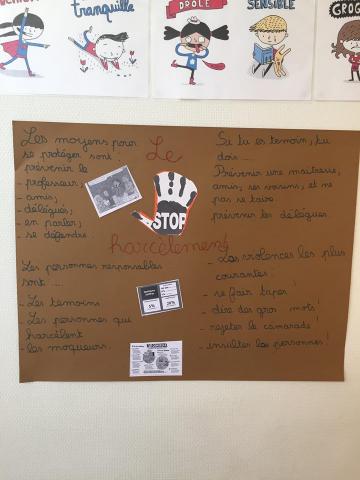 tranquille
DRÔLE
SENSIBLE
GROG
Les moyens pour
se protéger sont :
prévenir le
- professeur,
- amis,
- délégués;
- en parler;
- se défendre.
Le
STOP
harcèlement
Si tu es temoin, tu
dois ...
Prévenir une maitresse,
amis, ses voisins, et ne
pas se taire
prévenir les délégues.
Les personnes responsables
sont ...
- Les temoins
- Les personnes qui
harcèlent
- les moqueurs.
- Les violences les plus
courantes :
- se fair taper !
- dire des gros mots !
- rejeter le camarade !
- insulter les personnes !